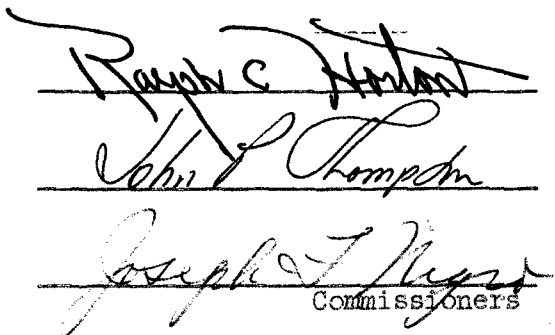 Ralph C Horton
John P Thompson
Joseph F Negro
Commissioners